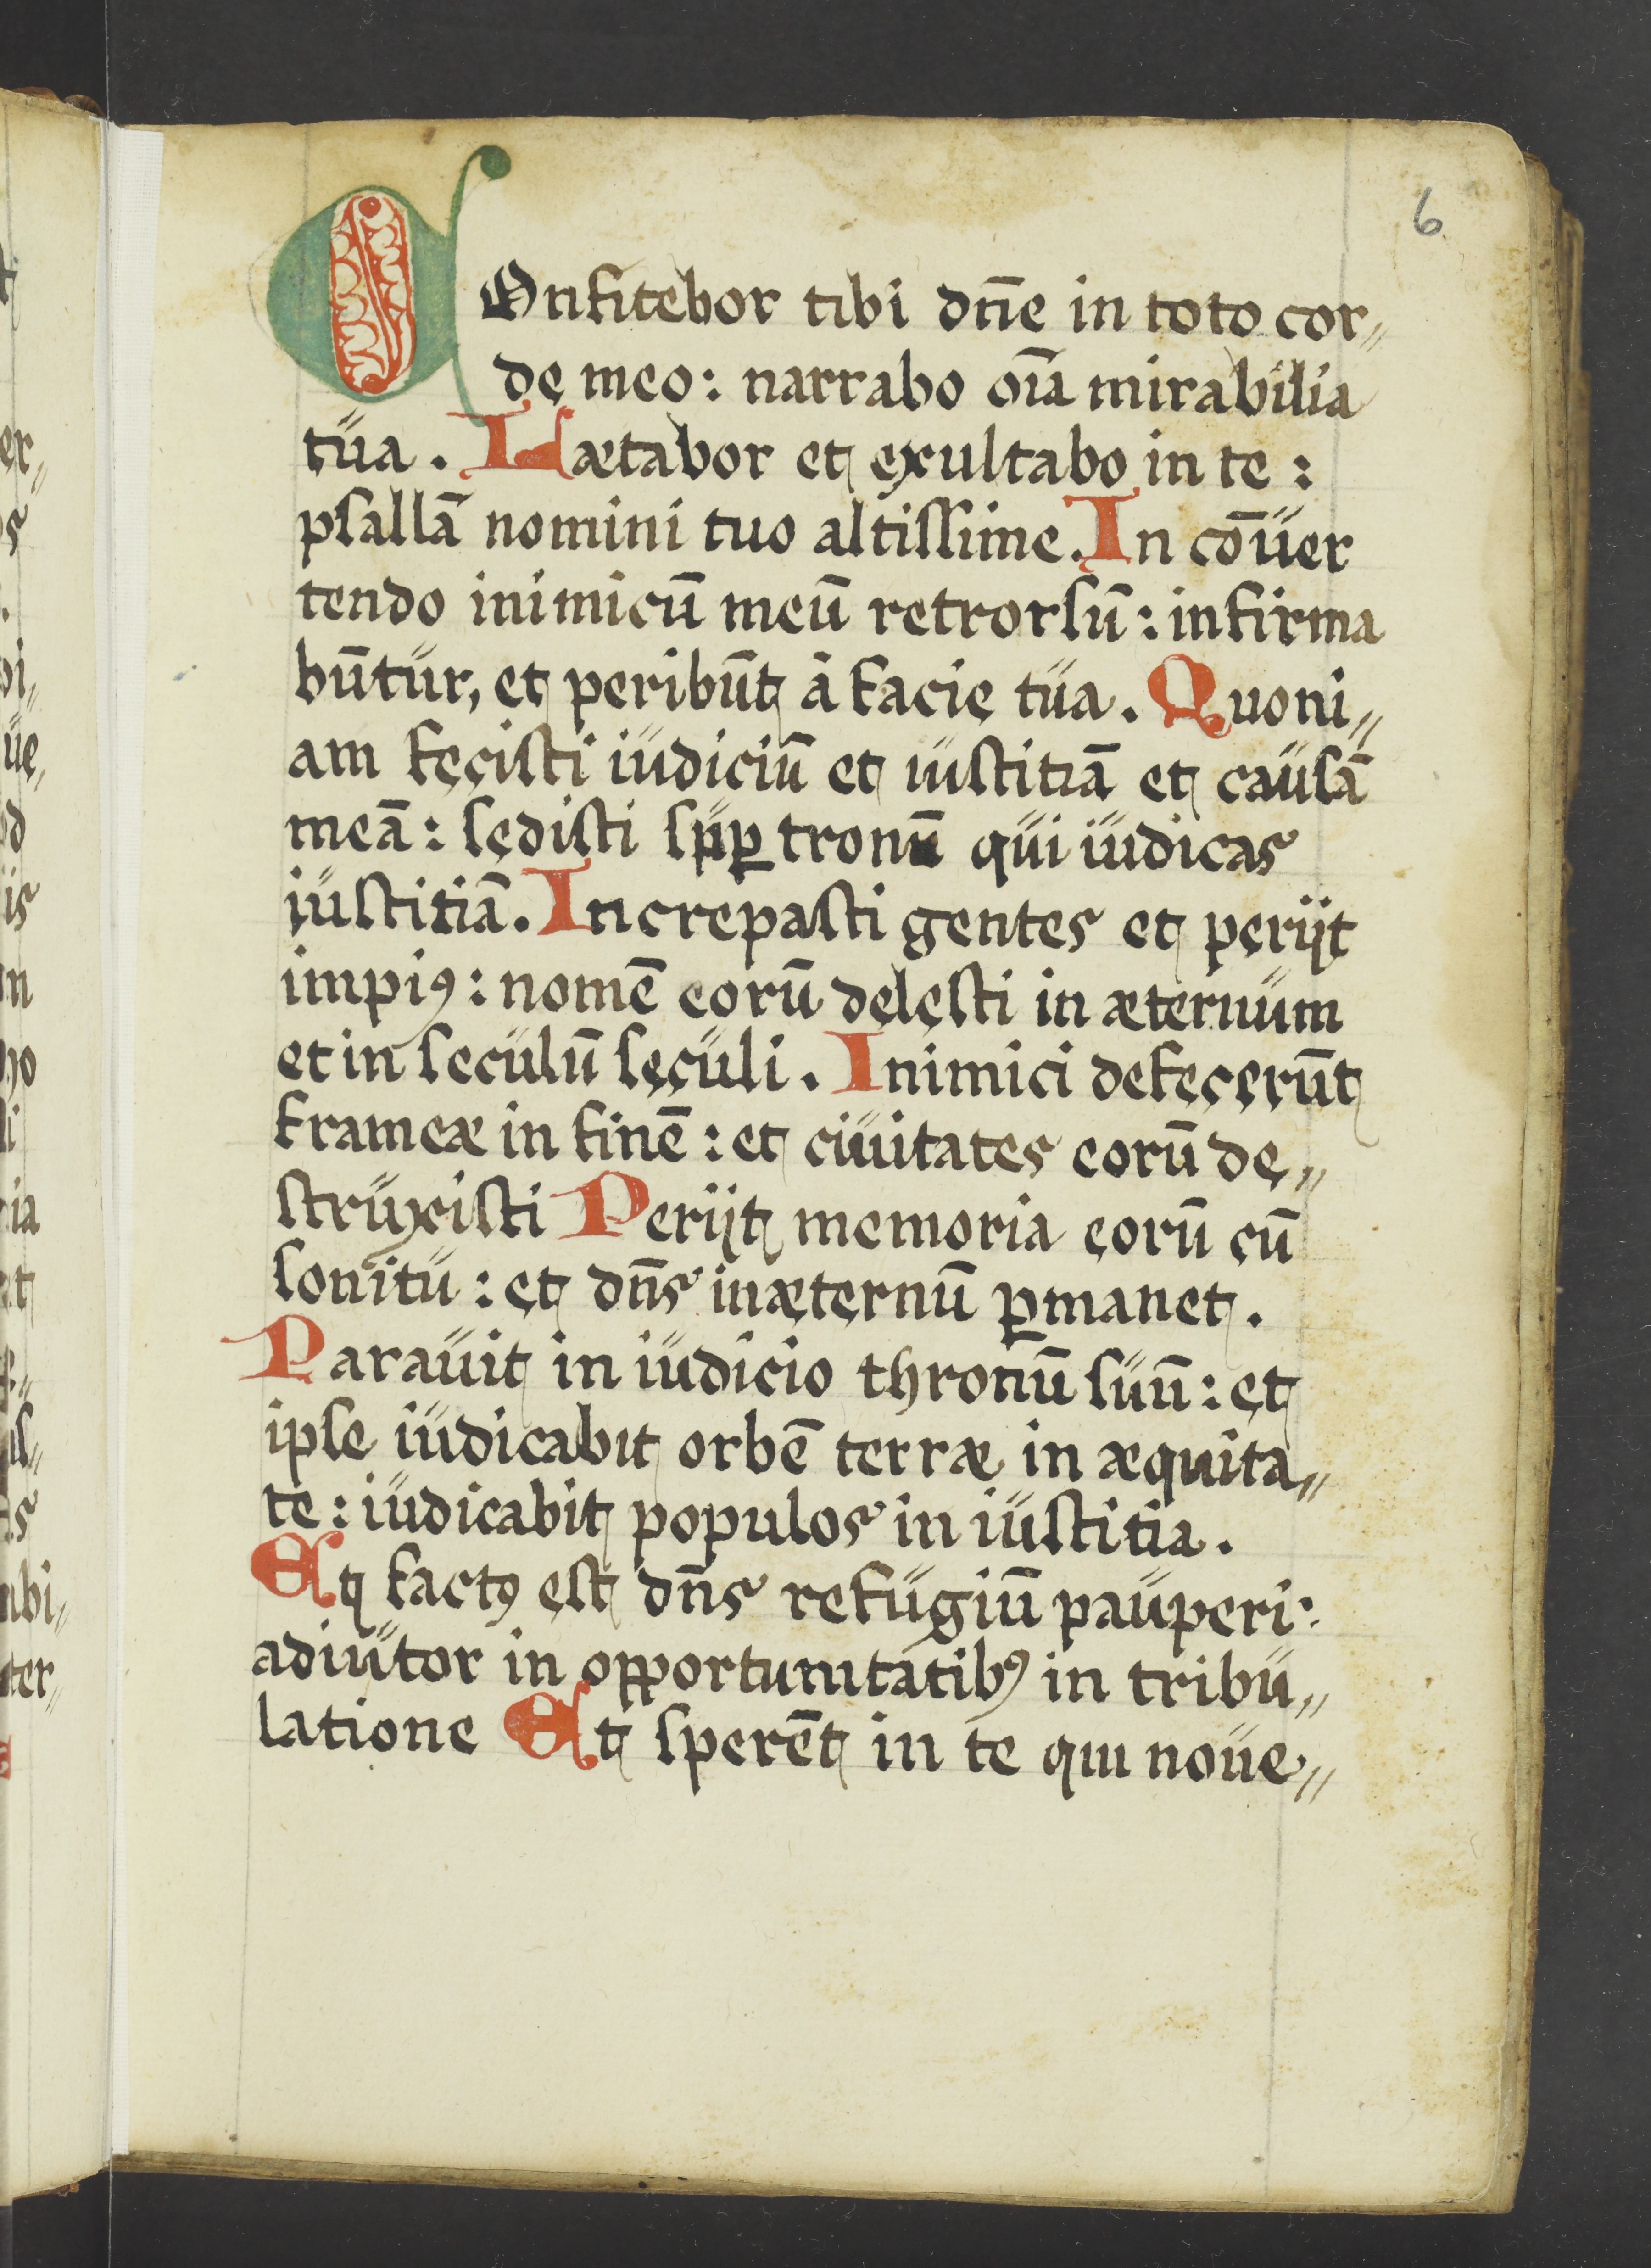 6
COnfitebor tibi dñe in toto cor„
de meo: narrabo oı̄a mirabilia
tua. Lætabor et exultabo in te:
psallā nomini tuo altissime. In cōuer
tendo inimicū meū retrorsū: infirma
būtur, et peribūt à facie tua. Quoni„
am fecisti iudiciū et iustitiā et causā
meā: sedisti sup̱ tronū qui iudicas
iustitiā. Increpasti gentes et perijt
impiꝰ: nomē eorū delesti in æternum
et in seculū seculi. Inimici defecerūt
frameæ in finē: et ciuitates eorū de„
struxisti Perijt memoria eorū cū
sonitu: et dñs in æternū ꝑmanet.
Parauit in iudicio thronū suū: et
ipse iudicabit orbē terræ in æquita„
te: iudicabit populos in iustitia.
Et factꝰ est dñs refugiū pauperi:
adiutor in opportunitatibꝰ in tribu„
latione Et sperēt in te qui noue„